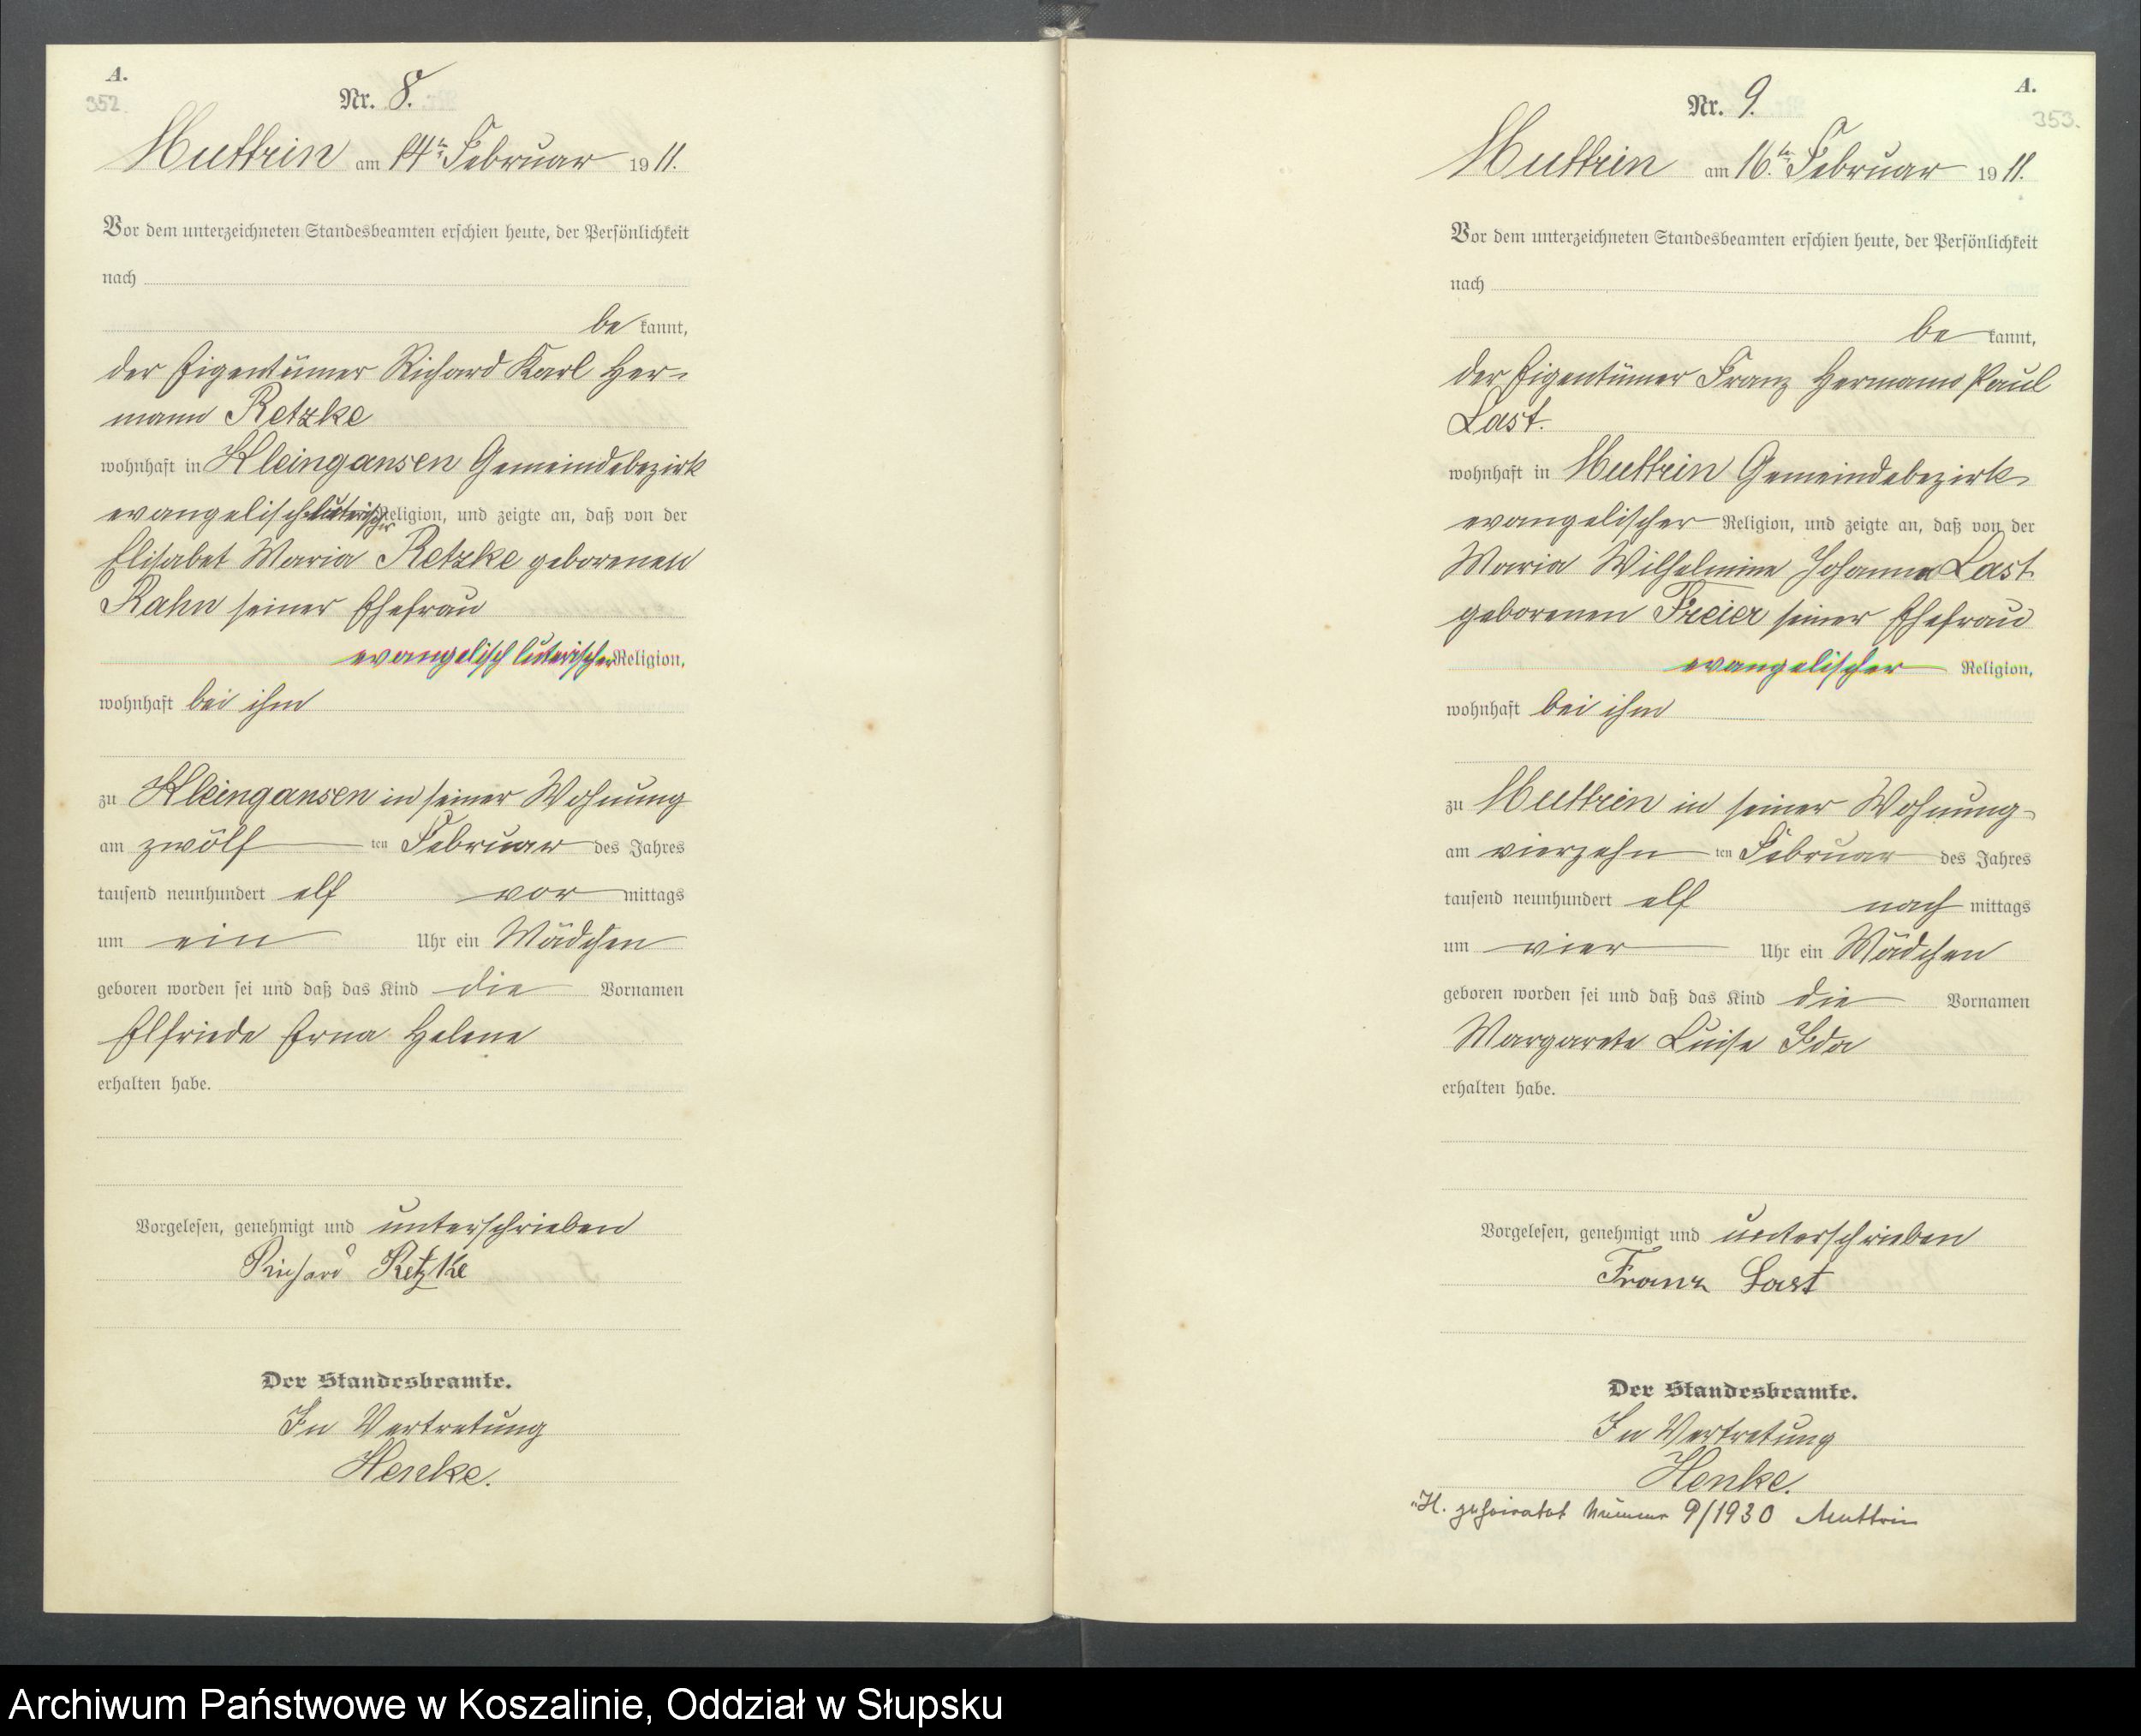 A.
352.
Nr. 8.
Muttrin am 14ten Februar 1911.
Vor dem unterzeichneten Standesbeamten erschien heute, der Persönlichkeit
nach
be kannt,
der Eigentümer Richard Karl Her-
mann Retzke
wohnhaft in Kleingansen Gemeindebezirk
evangelisch-luterischer Religion, und zeigte an, daß von der
Elisabet Maria Retzke geborenen
Rahn seiner Ehefrau
evangelisch luterischer Religion,
wohnhaft bei ihm
zu Kleingansen in seiner Wohnung
am zwölf ten Februar des Jahres
tausend neunhundert elf vor mittags
um ein Uhr ein Mädchen
geboren worden sei und daß das Kind die Vornamen
Elfriede Erna Helene
erhalten habe.
Vorgelesen, genehmigt und unterschrieben
Richard Retzke
Der Standesbeamte.
In Vertretung
Henke.
A.
353.
Nr. 9.
Muttrin am 16.ten Februar 1911.
Vor dem unterzeichneten Standesbeamten erschien heute, der Persönlichkeit
nach
be kannt,
der Eigentümer Franz Hermann Paul
Last.
wohnhaft in Muttrin Gemeindebezirk
evangelischer Religion, und zeigte an, daß von der
Maria Wilhelmine Johanna Last
geborenen Freier seiner Ehefrau
evangelischer Religion,
wohnhaft bei ihm
zu Muttrin in seiner Wohnung
am vierzehn ten Februar des Jahres
tausend neunhundert elf nach mittags
um vier Uhr ein Mädchen
geboren worden sei und daß das Kind die Vornamen
Margarete Luise Ida
erhalten habe.
Vorgelesen, genehmigt und unterschrieben
Franz Last
Der Standesbeamte.
In Vertretung
Henke.
H. geheiratet Nummer 9/1930 Muttrin
Archiwum Państwowe w Koszalinie, Oddział w Słupsku